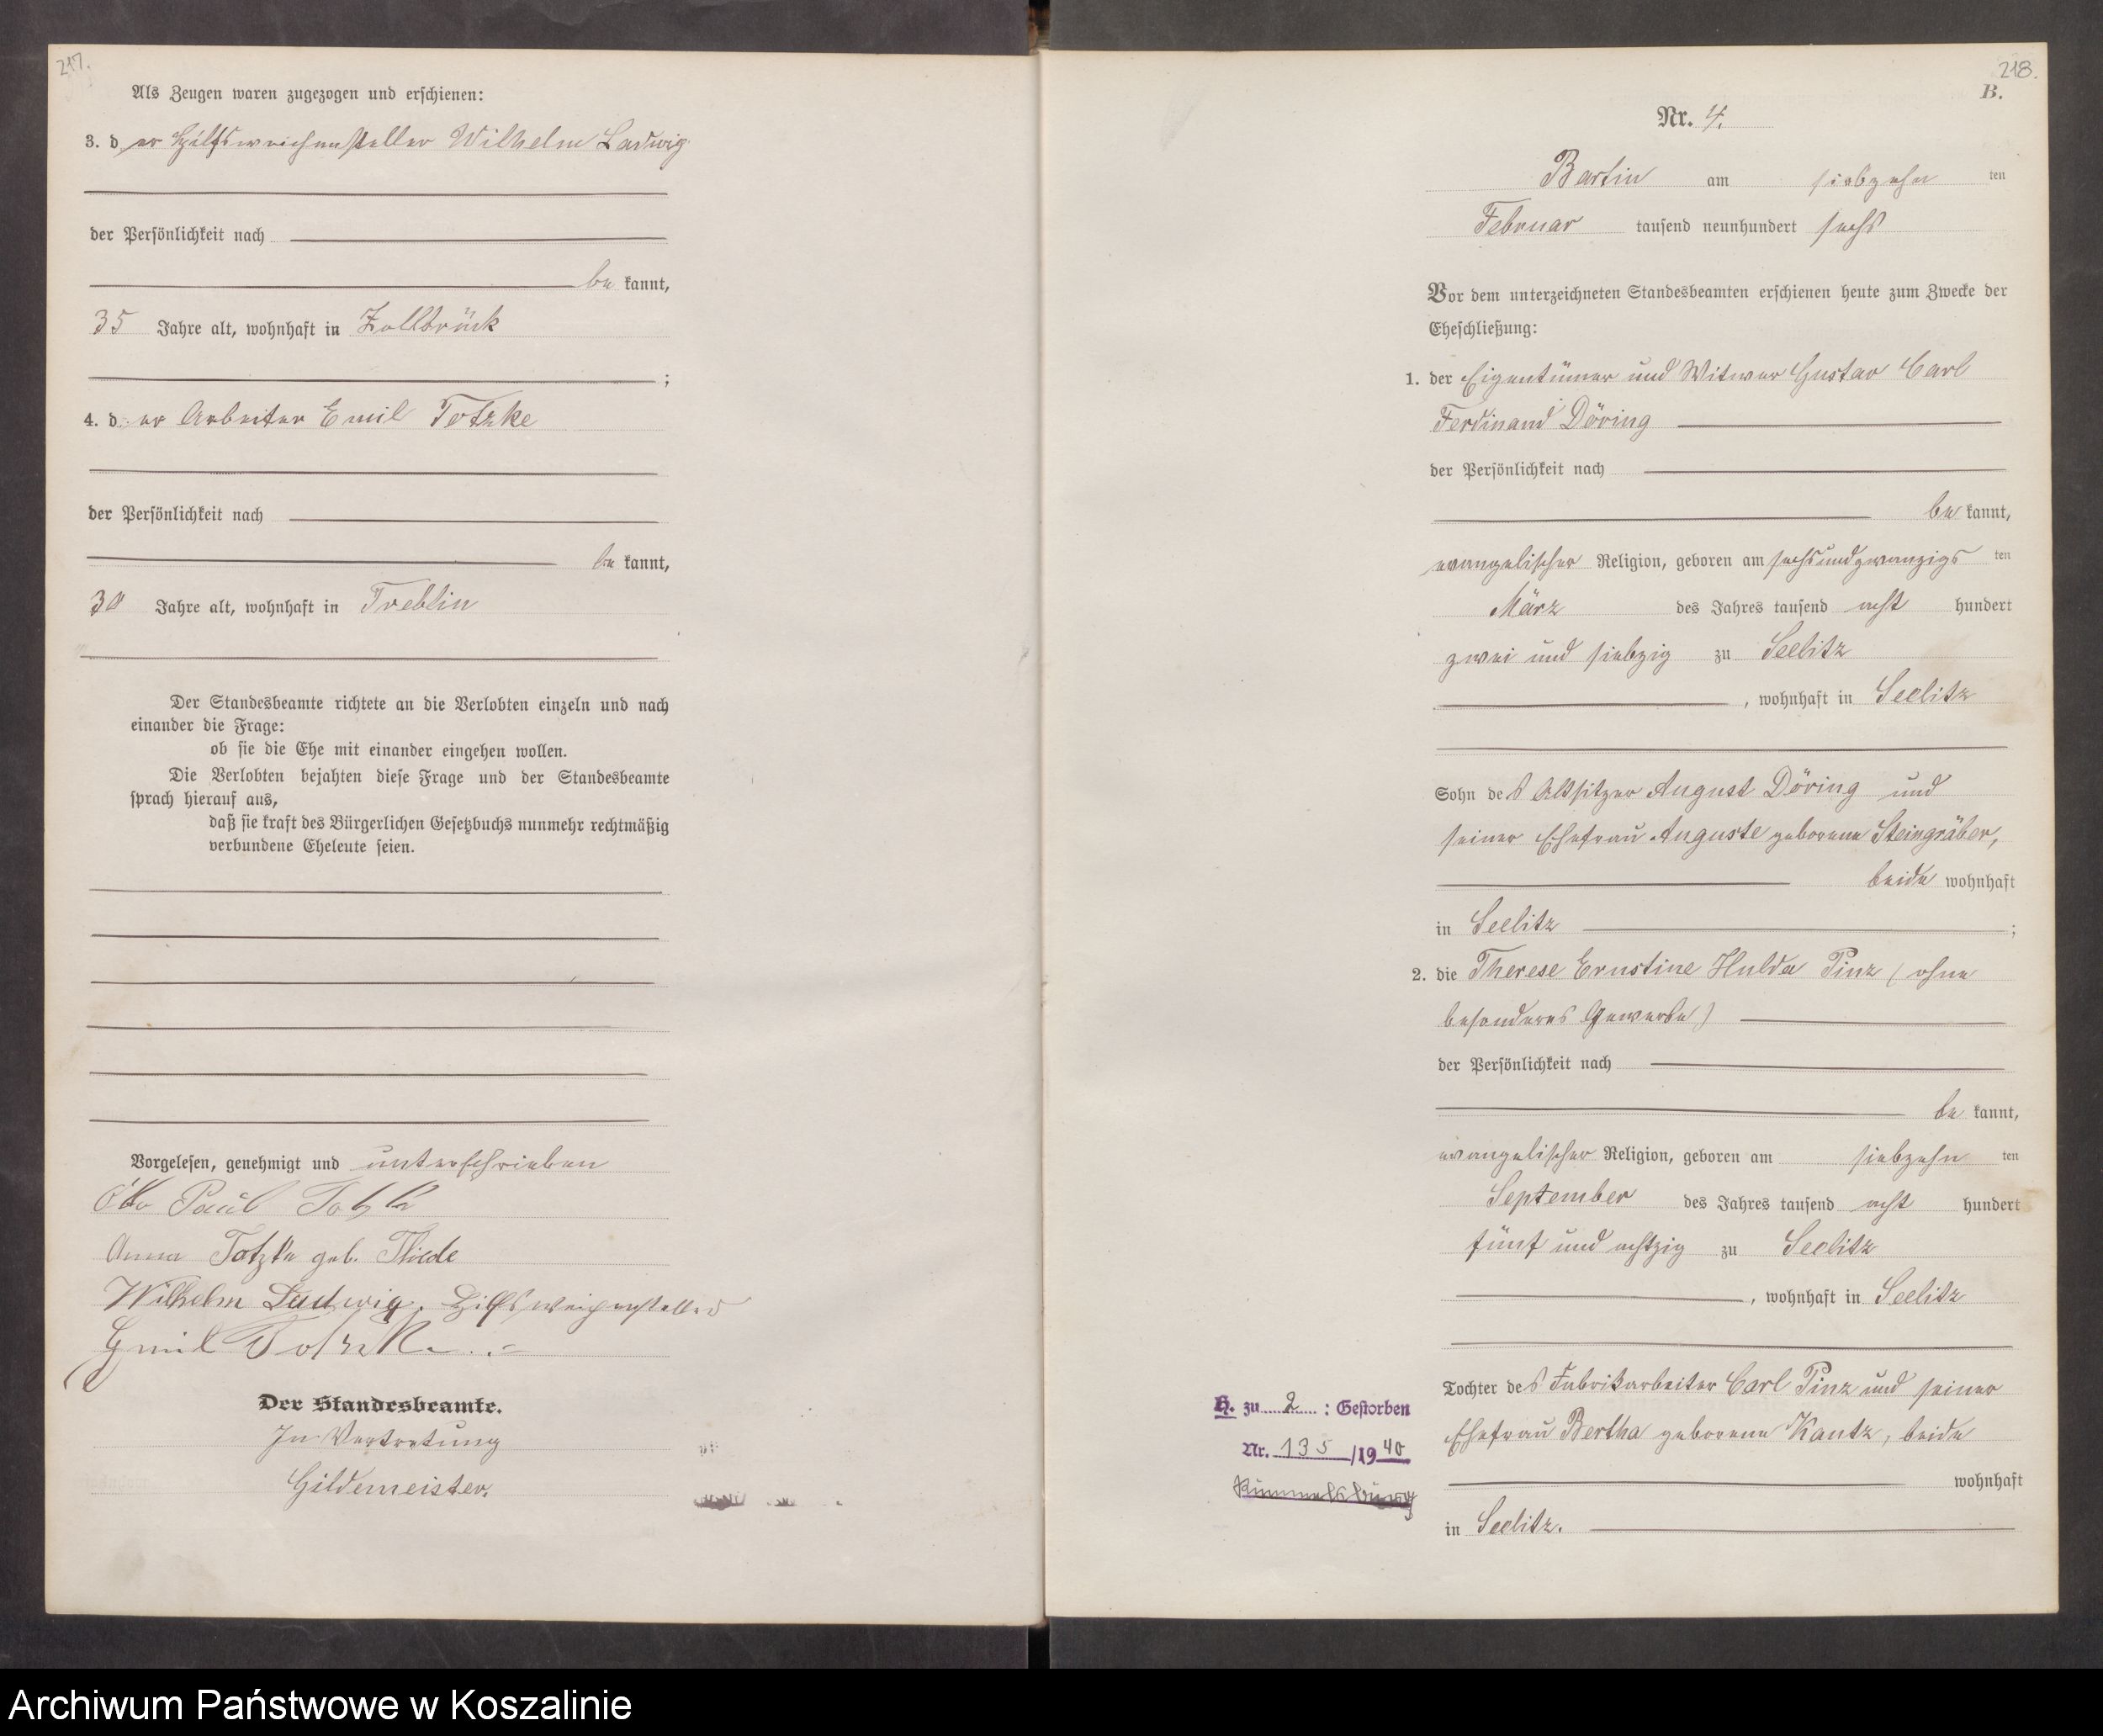 217.
Als Zeugen waren zugezogen und erschienen:
3. der Hilfsweichensteller Wilhelm Ladwig
der Persönlichkeit nach
be kannt,
35 Jahre alt, wohnhaft in Zollbrück
;
4. der Arbeiter Emil Totzke
der Persönlichkeit nach
be kannt,
30 Jahre alt, wohnhaft in Treblin
Der Standesbeamte richtete an die Verlobten einzeln und nach
einander die Frage:
ob sie die Ehe mit einander eingehen wollen.
Die Verlobten bejahten diese Frage und der Standesbeamte
sprach hierauf aus,
daß sie kraft des Bürgerlichen Gesetzbuchs nunmehr rechtmäßig
verbundene Eheleute seien.
Vorgelesen, genehmigt und unterschrieben
Otto Paul Totzke
Anna Totzke geb. Thiede
Wilhelm Ladwig, Hilfsweichensteller
Emil Totzke
Der Standesbeamte.
In Vertretung
Gildemeister.
218.
B.
Nr. 4.
Bartin am siebzehn ten
Februar tausend neunhundert sechs
Vor dem unterzeichneten Standesbeamten erschienen heute zum Zwecke der
Eheschließung:
1. der Eigentümer und Witwer Gustav Carl
Ferdinand Döring
der Persönlichkeit nach
be kannt,
evangelischer Religion, geboren am sechsundzwanzigs ten
März des Jahres tausend acht hundert
zwei und siebzig zu Seelitz
, wohnhaft in Seelitz
Sohn des Altsitzer August Döring und
seiner Ehefrau Auguste geborene Steingräber,
beide wohnhaft
in Seelitz ;
2. die Therese Ernstine Hulda Pinz (ohne
besonderes Gewerbe)
der Persönlichkeit nach
be kannt,
evangelischer Religion, geboren am siebzehn ten
September des Jahres tausend acht hundert
fünf und achtzig zu Seelitz
, wohnhaft in Seelitz
Tochter des Fabrikarbeiter Carl Pinz und seiner
Ehefrau Bertha geborene Kantz, beide
wohnhaft
in Seelitz.
H. zu 2 : Gestorben
Nr. 135/1940
Rummelsburg
Archiwum Państwowe w Koszalinie